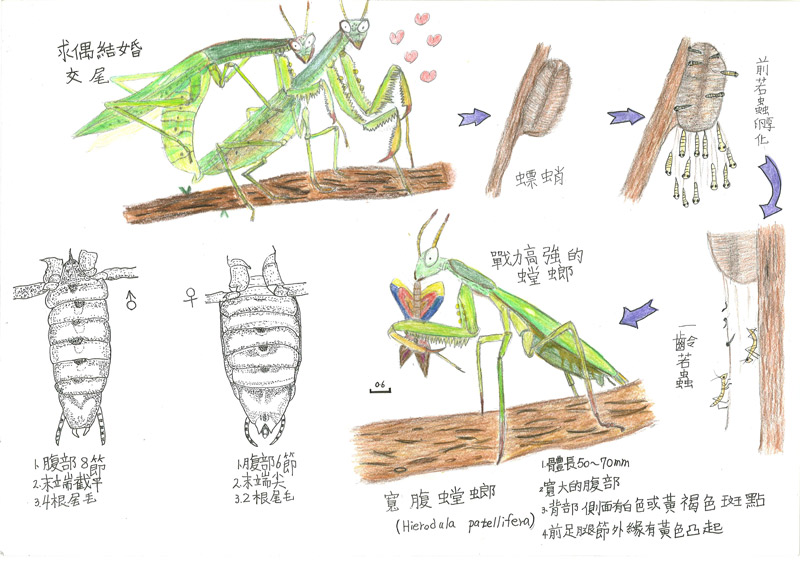 求偶結婚
交尾
螵蛸
前若蟲孵化
一齡若蟲
戰力高強的
螳螂
♂
♀
1.腹部8節
2.末端截平
3.4根尾毛
1.腹部6節
2.末端尖
3.2根尾毛
0.6
寬腹螳螂
(Hierodula patellifera)
1.體長50~70mm
2.寬大的腹部
3.背部側面有白色或黃褐色斑點
4.前足腿節外緣有黃色凸起